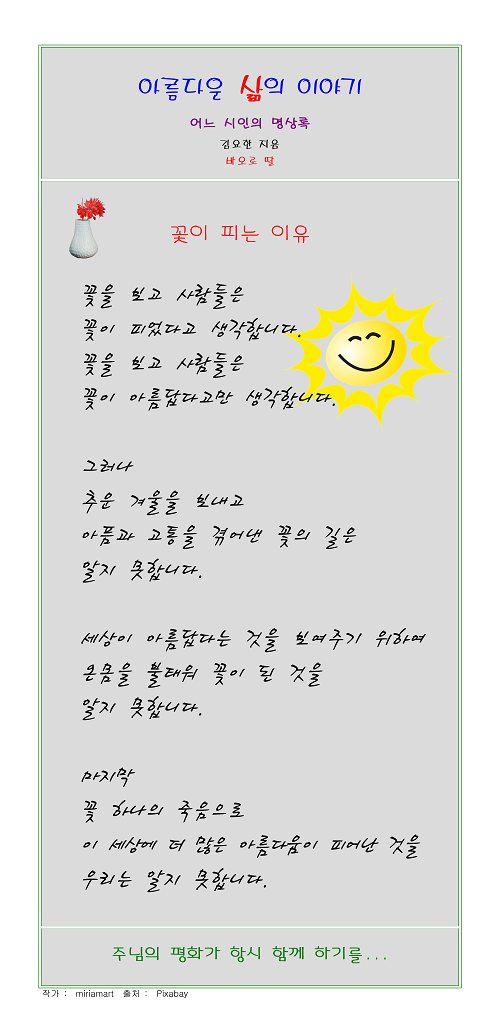 아름다운 삶의 이야기
어느 시인의 명상록
김요한 지음
바오로 딸
꽃이 피는 이유
꽃을 보고 사람들은
꽃이 피었다고 생각합니다.
꽃을 보고 사람들은
꽃이 아름답다고만 생각합니다.
그러나
추운 겨울을 보내고
아픔과 고통을 겪어낸 꽃의 길은
알지 못합니다.
세상이 아름답다는 것을 보여주기 위하여
온몸을 불태워 꽃이 된 것을
알지 못합니다.
마지막
꽃 하나의 죽음으로
이 세상에 더 많은 아름다움이 피어난 것을
우리는 알지 못합니다.
주님의 평화가 항시 함께 하기를...
작가 : miriamart 출처 : Pixabay